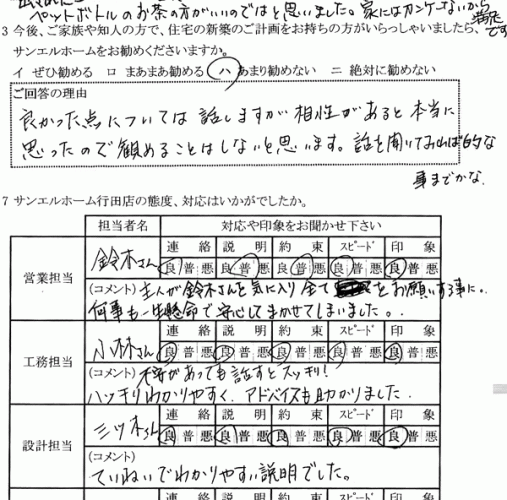 ペットボトルのお茶の方がいいのではと思いました。家にはカンケーないから
満足です
3 今後、ご家族や知人の方で、住宅の新築のご計画をお持ちの方がいらっしゃいましたら、
サンエルホームをお勧めくださいますか。
イ ぜひ勧める ロ まあまあ勧める ハ あまり勧めない ニ 絶対に勧めない
ご回答の理由
良かった点については話しますが相性があると本当に
思ったので勧めることはしないと思います。話を聞いてみれば的な
事までかな。
7 サンエルホーム行田店の態度、対応はいかがでしたか。
担当者名 対応や印象をお聞かせ下さい
営業担当 鈴木さん 連絡 説明 約束 スピード 印象
良 普 悪 良 普 悪 良 普 悪 良 普 悪 良 普 悪
(コメント) 主人が鈴木さんを気に入り全てをお願いする事に。
何事も一生懸命で安心してまかせてしまいました。
工務担当 小林さん 連絡 説明 約束 スピード 印象
良 普 悪 良 普 悪 良 普 悪 良 普 悪 良 普 悪
(コメント) 不安があっても話すとスッキリ!
ハッキリわかりやすく、アドバイスも助かりました。
設計担当 三ツ木さん 連絡 説明 約束 スピード 印象
良 普 悪 良 普 悪 良 普 悪 良 普 悪 良 普 悪
(コメント)
ていねいでわかりやすい説明でした。
連絡 説明 約束 スピード 印象